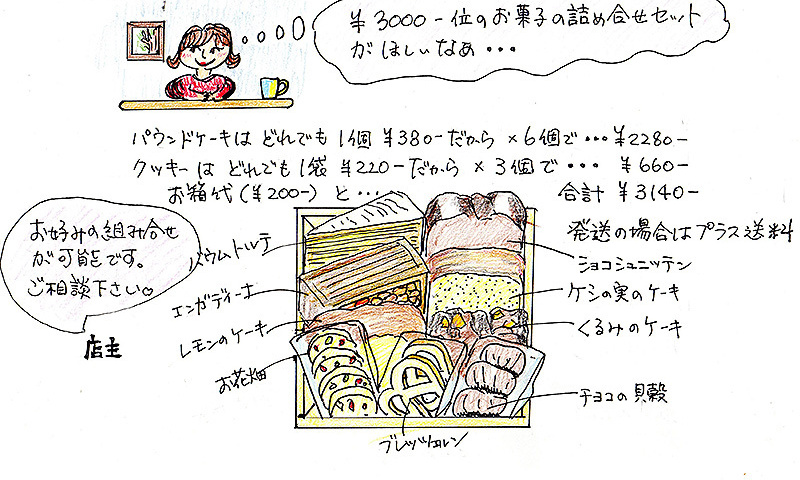 ¥3000-位のお菓子の詰め合せセット
がほしいなぁ・・・
パウンドケーキは どれでも 1個 ¥380-だから ×6個で・・・¥2280-
クッキーは どれでも 1袋 ¥220-だから × 3個で・・・ ¥660-
お箱代(¥200-)と・・・ 合計 ¥3140-
発送の場合はプラス送料
お好みの組み合せ
が可能です。
ご相談下さい♡
店主
バウムトルテ
エンガディーナ
レモンのケーキ
お花畑
ショコシュニッテン
ケシの実のケーキ
くるみのケーキ
チョコの貝殻
ブレッツェルン